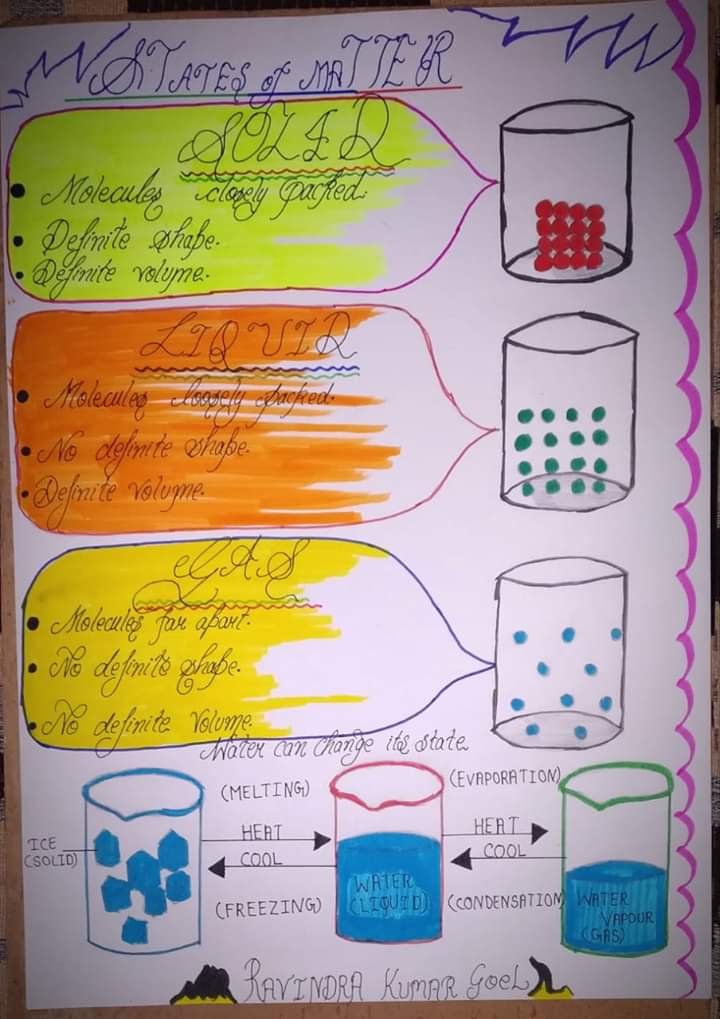 STATES of MATTER
SOLID
Molecules closely packed.
Definite shape.
Definite volume.
LIQUID
Molecules loosely packed.
No definite shape.
Definite volume.
GAS
Molecules far apart.
No definite shape.
No definite volume.
Water can change its state
(MELTING)
(EVAPORATION)
ICE
(SOLID)
HEAT
COOL
HEAT
COOL
(FREEZING)
WATER
(LIQUID)
(CONDENSATION)
WATER
VAPOUR
(GAS)
RAVINDRA KUMAR GOEL